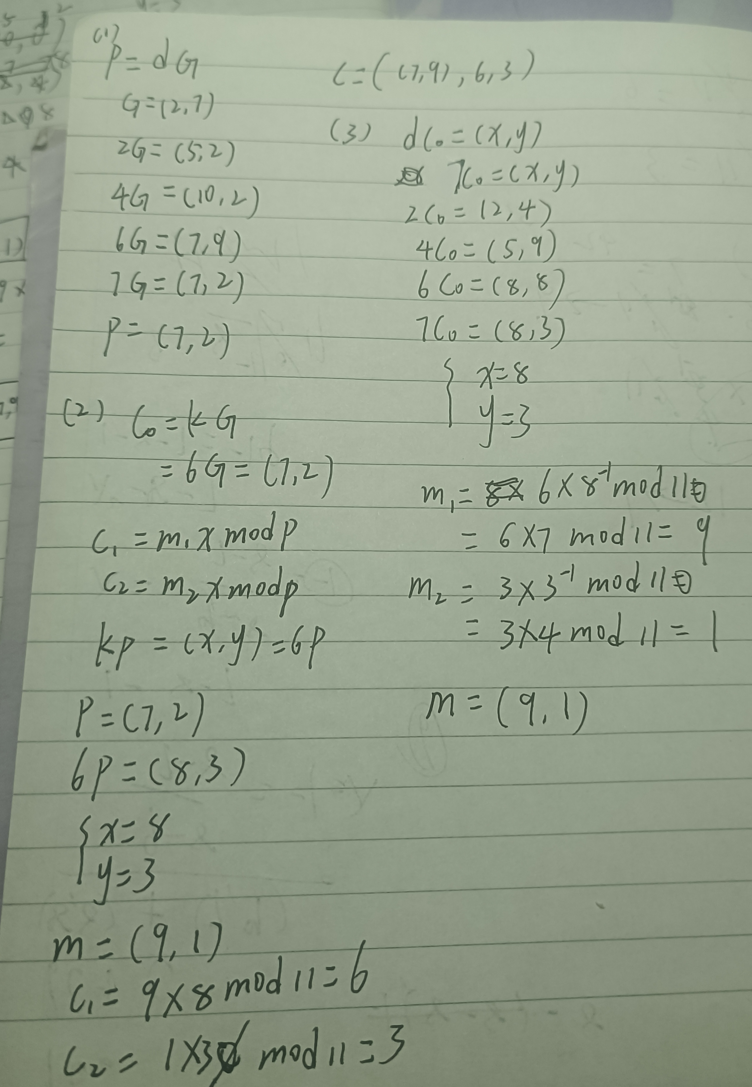 (1)
P=dG
G=(2,7)
2G=(5,2)
4G=(10,2)
6G=(7,9)
7G=(7,2)
P=(7,2)
(2) C₀=kG
=6G=(7,2)
C₁=m₁x mod p
C₂=m₂x mod p
kp=(x,y)=6p
P=(7,2)
6P=(8,3)
{x=8
y=3
m=(9,1)
C₁=9×8 mod 11=6
C₂=1×3 mod 11=3
C=((7,9),6,3)
(3) dC₀=(x,y)
7C₀=(x,y)
2C₀=(2,4)
4C₀=(5,9)
6C₀=(8,8)
7C₀=(8,3)
{x=8
y=3
m₁=6×8⁻¹mod 11
=6×7 mod 11=9
m₂=3×3⁻¹ mod 11
=3×4 mod 11=1
m=(9,1)